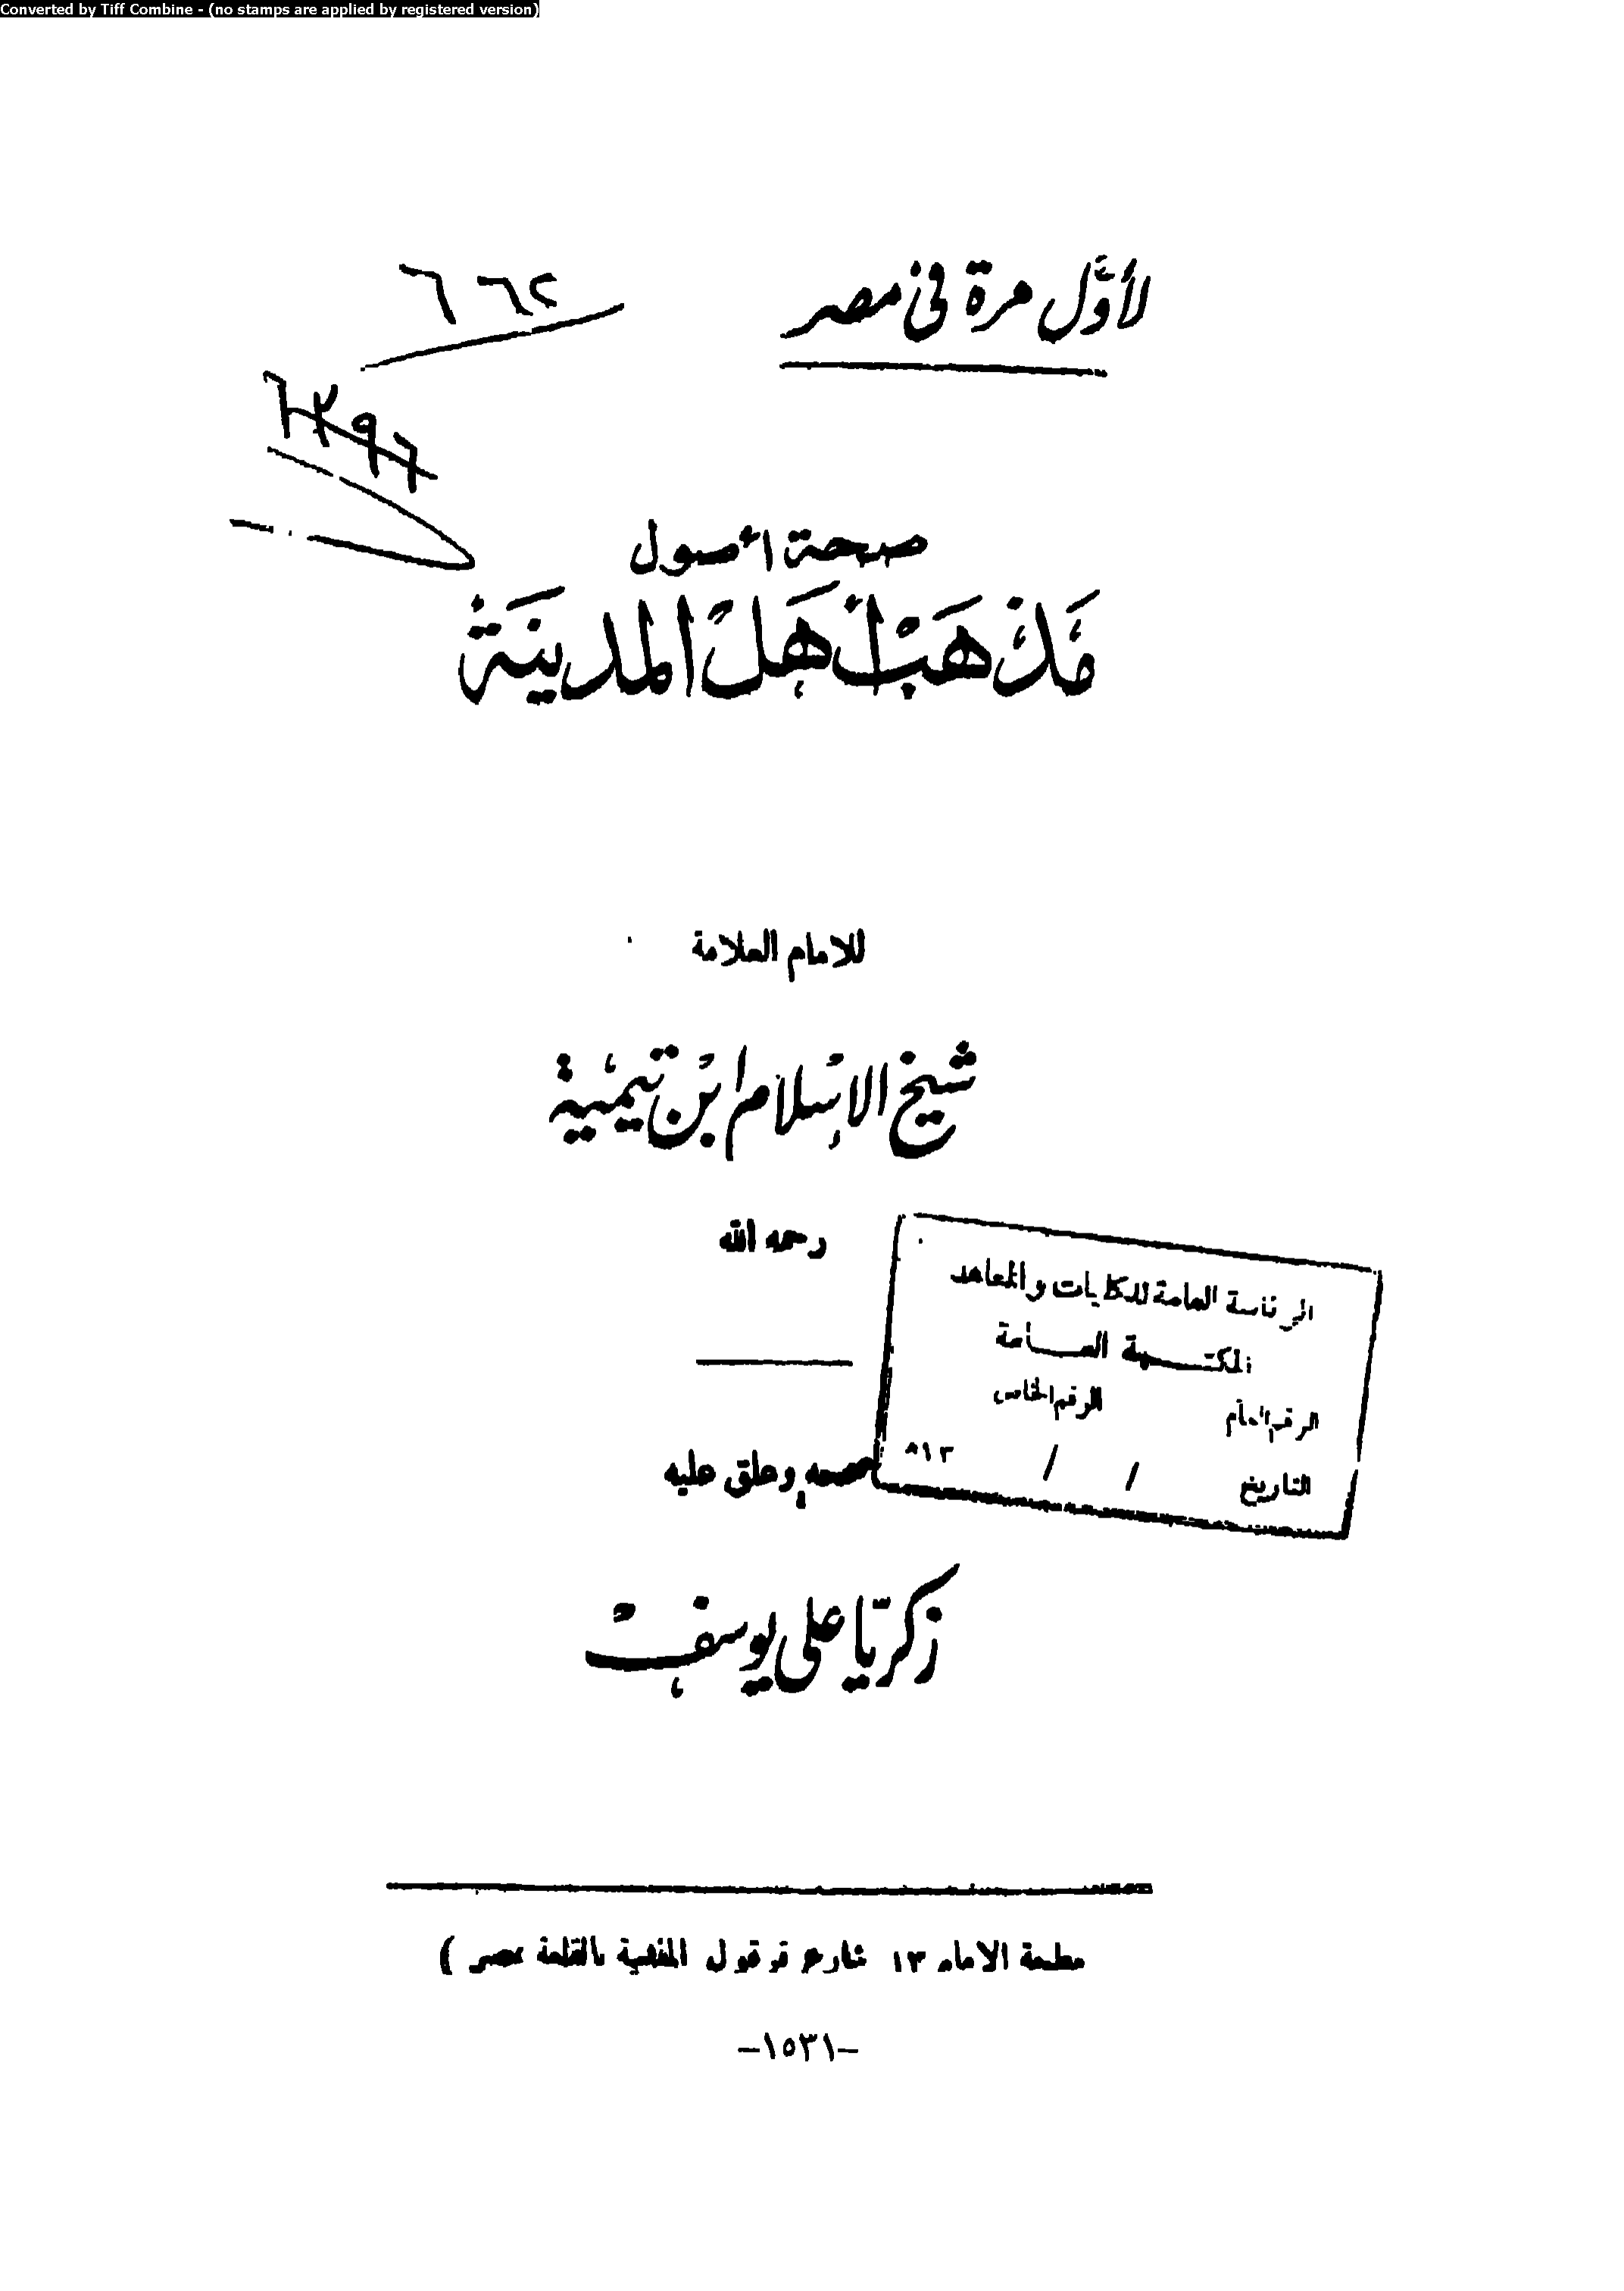 Converted by Tiff Combine - (no stamps are applied by registered version)
لأوَّل مرة فى مصر
٦٦٢
٦٣٩٦
صحة أصول
مَذهَب أهَل المدينَة
للامام العلامة
شيخ الإسلام ابن تيمية
رحمه الله
الرئاسة العامة للكليات والمعاهد
المكتبة العامة
الرقم العام الرقم الخاص
التاريخ / / ١٣٨
صححه وعلق عليه
زكريّا على يوسف
مطبعة الامام ١٣ شارع قرقول المنشية بالقلعة مصر )
-١٥٣١-